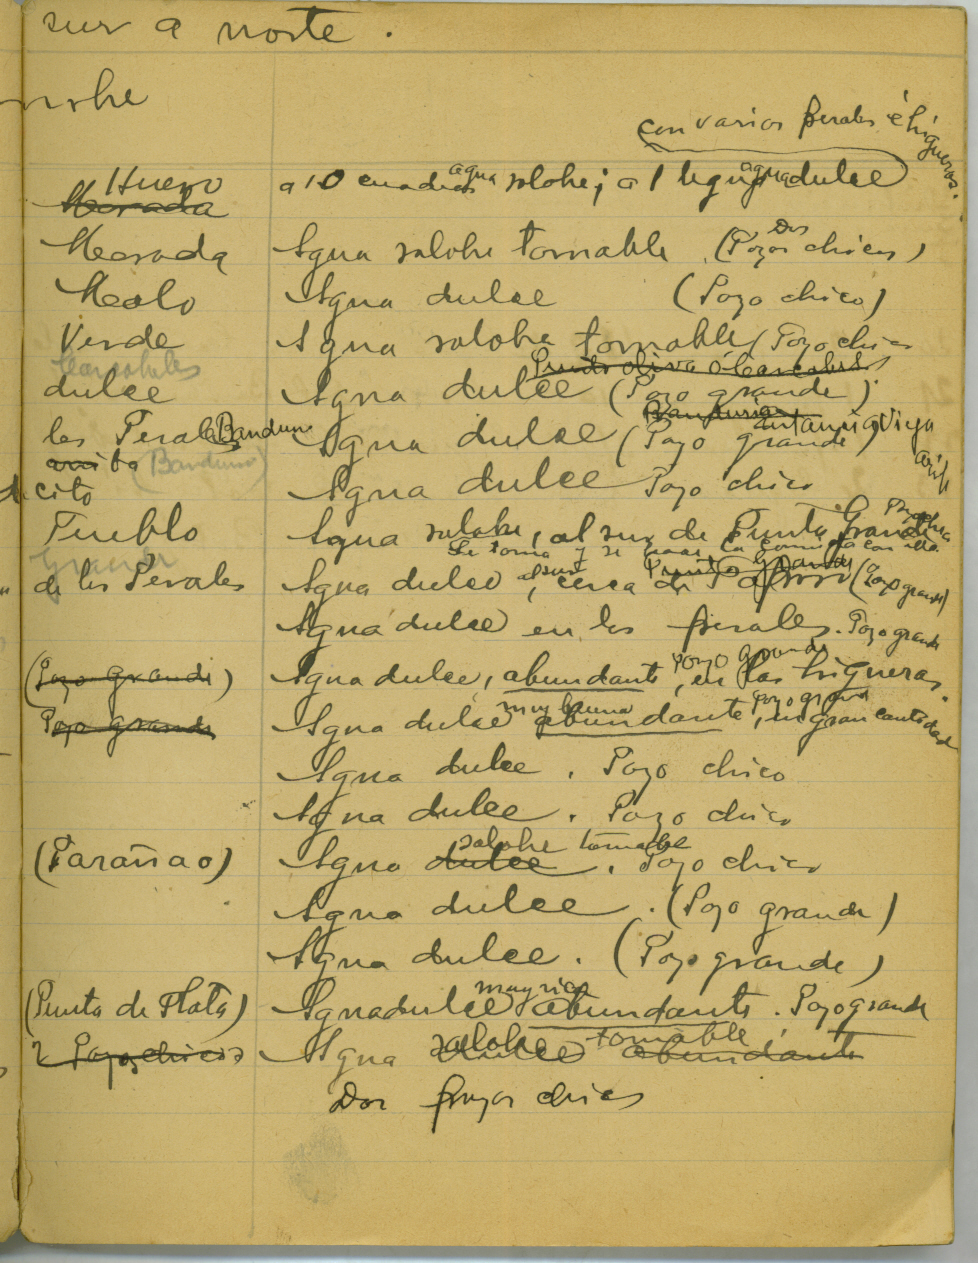 sur a norte.
con varios perales é higueras.
Huero a 10 cuadras agua salobre; a 1 legua agua dulce
Morada
Morada Agua salobre tomable. (Dos Pozos chicos)
Malo Agua dulce (Pozo chico)
Verde Agua salobre tomable (Pozo chico
dulce Agua dulce (Pozo grande)
los Perales Agua dulce (Pozo grande)
cito Agua dulce Pozo chico
Pueblo Agua salobre, al sur de Punta Grande
Se toma y se hace la comida con ella
Grande
de los Perales Agua dulce, cerca de (Pozo grande)
Agua dulce en los perales. Pozo grande
Pozo grande
(Pozo grande) Agua dulce, abundante, en las higueras.
muy buena Pozo grande
Pozo grande Agua dulce abundante, en gran cantidad
Agua dulce. Pozo chico
Agua dulce. Pozo chico
salobre tomable
(Parañao) Agua dulce. Pozo chico
Agua dulce. (Pozo grande)
Agua dulce. (Pozo grande)
muy rica
(Punta de Plata) Agua dulce abundante. Pozo grande
salobre tomable
2 Pozos chicos Agua dulce abundante
Dos pozos chicos